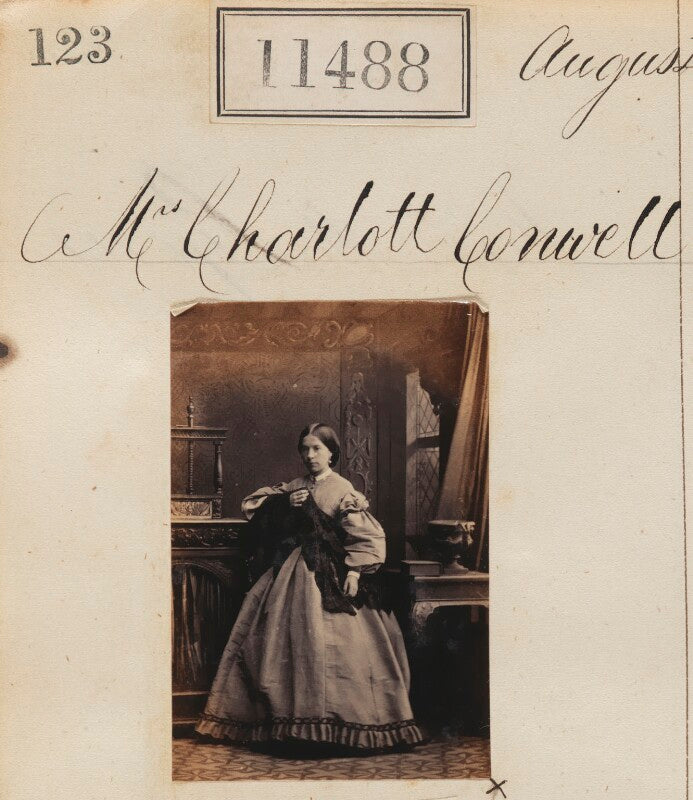 123
11488
August
Mrs Charlott Conwell
x